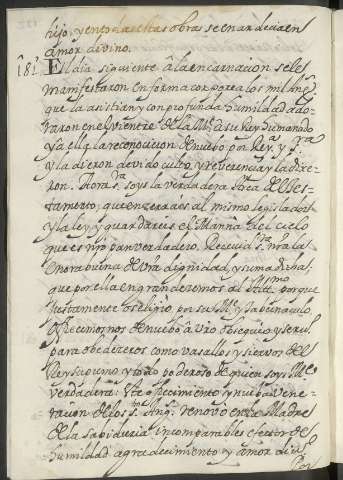 hijo, y en todas estas obras se enardecia en
amor divino.
181 El dia siguiente â la encarnacion se les
manifestaron en forma corporea los mil Angs
que la asistian y con profunda humildad ado-
raron en el vientre de la Me a su Rey humanado
y â ella la reconocieron de nuebo por Reyna y sra
y la dieron devido culto y reverencia y la dixe-
ron. Aora sa soys la verdadera Arca del tes-
tamento, que enzerrais al mismo legislador
y la ley y guardareis el Manna del cielo
que es nro pan verdadero. Recevid sra nra la
enorabuena de vra dignidad y suma dicha,
que por ella engranderemos al Altmo porque
justamente os eligio por su Me y tabernaculo.
Ofrecemosnos de nuebo â vro obsequio y servo
para obedeceros como vasallos y siervos del
Rey supremo y todo poderoso de quien soys Me
verdadera. Este ofrecimiento y nueba vene-
racion de los stos Angs renovo en la Madre
de la sabiduria incomparables efectos de
humildad agradecimiento y amor divi